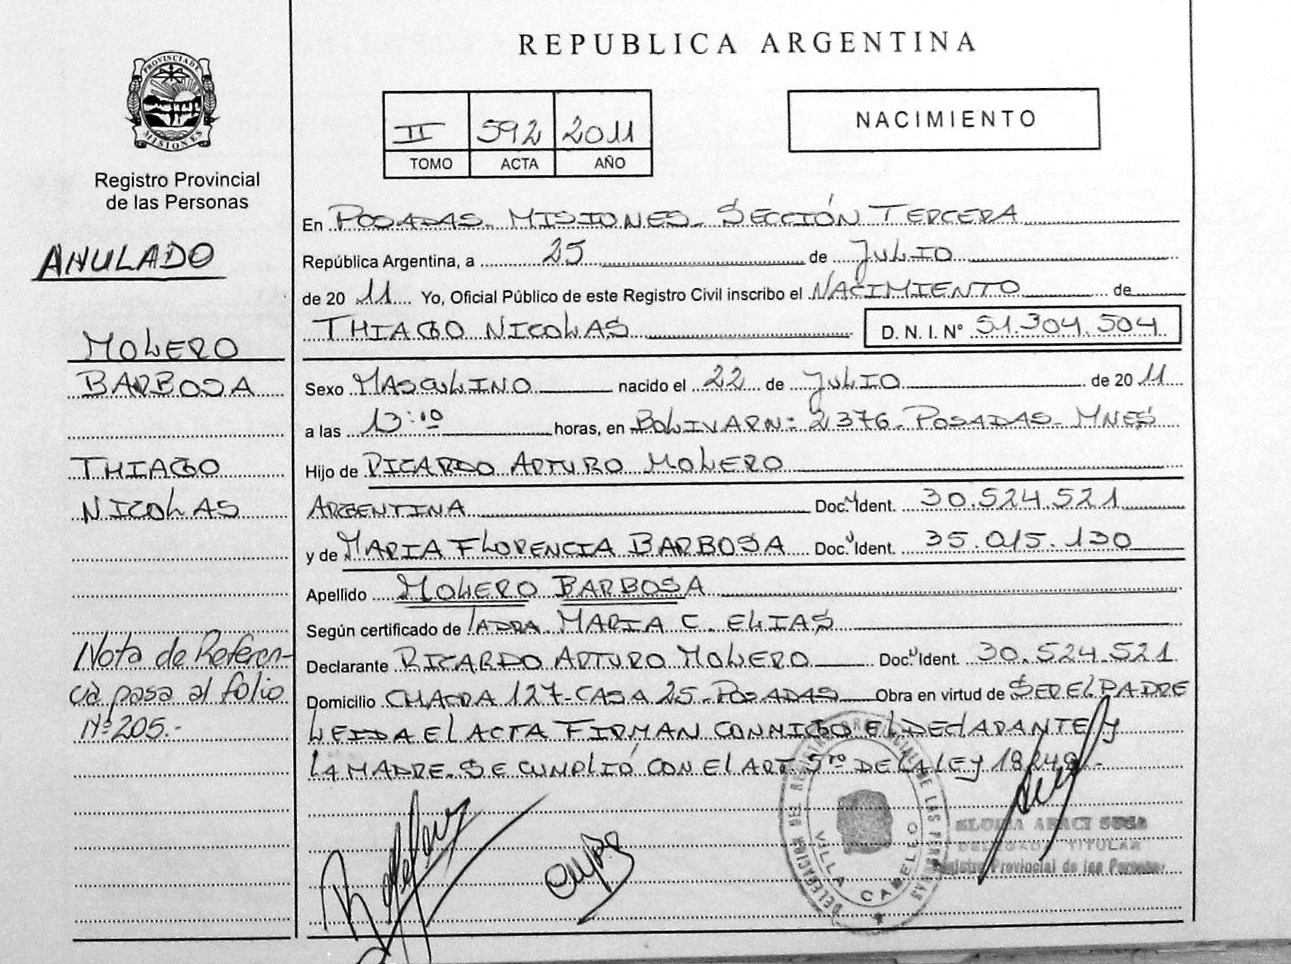 REPUBLICA ARGENTINA
PROVINCIA DE MISIONES
Registro Provincial
de las Personas
ANULADO
II 592 2011
TOMO ACTA AÑO
NACIMIENTO
En POSADAS. MISIONES. SECCIÓN TERCERA
República Argentina, a 25 de JULIO
de 2011 Yo, Oficial Público de este Registro Civil inscribo el NACIMIENTO de
THIAGO NICOLAS D. N. I. N° 51.304.504
MOLERO
BARBOSA
THIAGO
NICOLAS
Sexo MASCULINO nacido el 22 de JULIO de 2011
a las 13:10 horas, en BOLIVAR N: 2376. POSADAS. MNES
Hijo de RICARDO ARTURO MOLERO
ARGENTINA Doc. Ident. 30.524.521
y de MARIA FLORENCIA BARBOSA Doc. Ident. 35.015.130
Apellido MOLERO BARBOSA
Según certificado de MARIA C. ELIAS
Declarante RICARDO ARTURO MOLERO Doc. Ident. 30.524.521
Domicilio CHACRA 127-CASA 25-POSADAS Obra en virtud de SER EL PADRE
LEIDA EL ACTA FIRMAN CONMIGO EL DECLARANTE Y
LA MADRE. SE CUMPLIÓ CON EL ART 5to DE LA LEY 18.248.-
Nota de Referen-
cia pasa al folio
N° 205.-
DELEGACION DEL REGISTRO PROVINCIAL DE LAS PERSONAS
VILLA CABELLO
DELEGADA TITULAR
Registro Provincial de las Personas